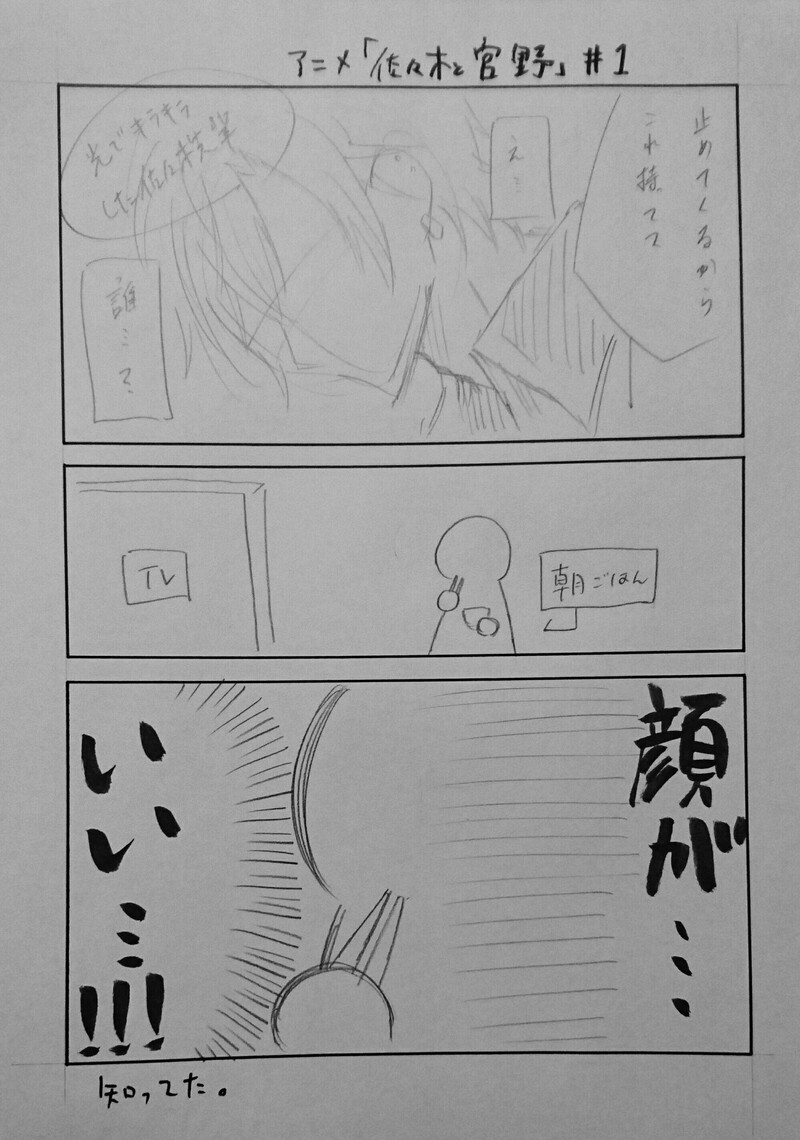 アニメ「佐々木と宮野」#1
止めてくるから
これ持ってて
え…
光でキラキラ
した佐々
誰…て…
TV
朝ごはん
顔が…
いい…!!!
知ってた。